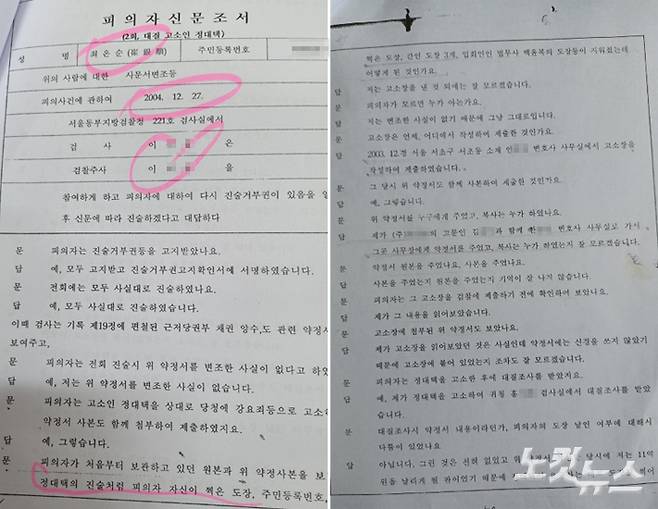 피 의 자 신 문 조 서
(2회, 대질 고소인 정대택)
성 명 최은순(崔銀順) 주민등록번호
위의 사람에 대한 사문서변조등
피의사건에 관하여 2004. 12. 27.
서울동부지방검찰청 221호 검사실에서
검 사 이 은
검찰주사 이 을
참여하게 하고 피의자에 대하여 다시 진술거부권이 있음을 알
후 신문에 따라 진술하겠다고 대답하다
문 피의자는 진술거부권등을 고지받았나요.
답 예, 모두 고지받고 진술거부권고지확인서에 서명하였습니다.
문 전회에는 모두 사실대로 진술하였나요.
답 예, 모두 사실대로 진술하였습니다.
이때 검사는 기록 제19정에 편철된 근저당권부 채권 양수,도 관련 약정서
보여주고,
문 피의자는 전회 진술시 위 약정서를 변조한 사실이 없다고 하였
답 예, 저는 위 약정서를 변조한 사실이 없습니다.
문 피의자는 고소인 정대택을 상대로 당청에 강요죄등으로 고소하
약정서 사본도 함께 첨부하여 제출하였지요.
답 예, 그렇습니다.
문 피의자가 처음부터 보관하고 있던 원본과 위 약정사본을 보
정대택의 진술처럼 피의자 자신이 찍은 도장, 주민등록번호,
찍은 도장, 간인 도장 3개, 입회인인 법무사 백윤복의 도장등이 지워졌는데
어떻게 된 것인가요.
답 저는 고소장을 낸 것 외에는 잘 모르겠습니다.
문 피의자가 모르면 누가 아는가요.
답 저는 변조한 사실이 없기 때문에 그냥 그대로입니다.
문 고소장은 언제, 어디에서 작성하여 제출한 것인가요.
답 2003. 12.경 서울 서초구 서초동 소재 변호사 사무실에서 고소장을
작성하여 제출하였습니다.
문 그 당시 위 약정서도 함께 사본하여 제출한 것인가요.
답 예, 그렇습니다.
문 위 약정서를 누구에게 주었고, 복사는 누가 하였나요.
답 제가 (주) 의 고문인 김 과 함께 변호사 사무실로 가서
그곳 사무장에게 약정서를 주었고, 복사는 누가 하였는지 잘 모르겠습니다.
문 약정서 원본을 주었나요, 사본을 주었나요.
답 사본을 주었는지 원본을 주었는지 기억이 잘 나지 않습니다.
문 피의자는 그 고소장을 검찰에 제출하기 전에 확인하여 보았나요.
답 제가 그 내용을 읽어보았습니다.
문 고소장에 첨부된 위 약정서도 보았나요.
답 제가 고소장을 읽어보았던 것은 사실인데 약정서에는 신경을 쓰지 않았기
때문에 고소장에 붙어 있었는지 조차도 잘 모르겠습니다.
문 피의자는 정대택을 고소한 후에 대질조사를 받았지요.
답 예, 제가 정대택을 고소하여 귀청 홍 검사실에서 대질조사를 받았
습니다.
문 대질조사시 약정서 내용이라던가, 피의자의 도장 날인 여부에 대해서
다툼이 있었나요
답 아닙니다, 그런 것은 전혀 없었고 위 당시에 저는 11억
원을 날리게 될 판이었기 때문에
노컷뉴스